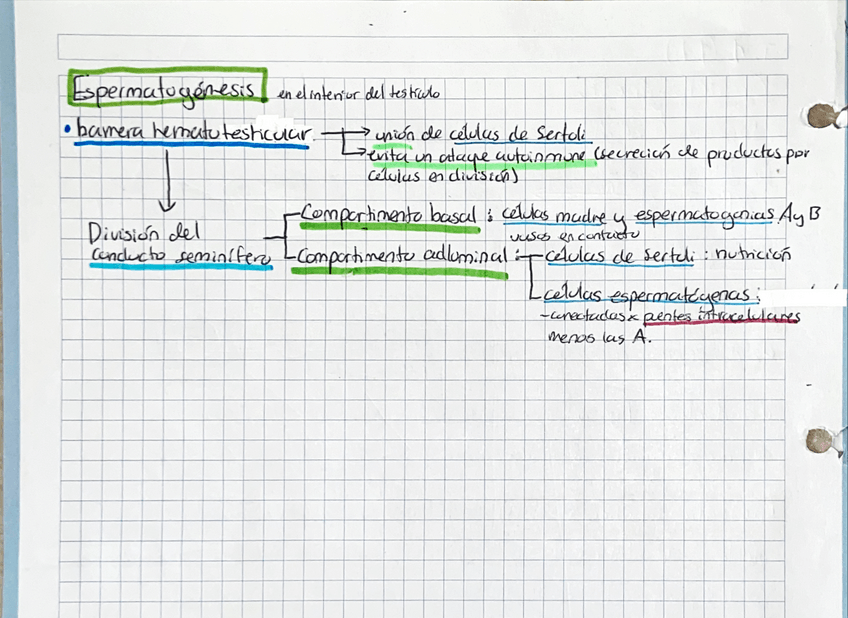 Espermatogénesis en el interior del testículo
• barrera hematotesticular → unión de células de Sertoli
→ evita un ataque autoinmune (secreción de productos por
células en división)
División del
conducto seminífero
Compartimento basal : células madre y espermatogonias A y B
vasos en contacto
Compartimento adluminal : células de Sertoli : nutrición
células espermatógenas :
- conectadas x puentes intracelulares
menos las A.